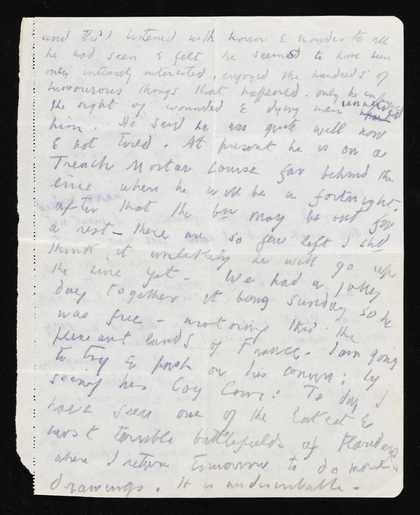 and tho' I listened with horror & wonder to all
he had seen & felt he seemed to have been
only intensely interested, enjoyed the hundreds of
humourous things that happened. only he confessed
the sight of wounded & dying men unnerved
him. He said he was quite well now
& not tired. At present he is on a
Trench Mortar Course far behind the
line where he will be a fortnight.
after that the bn may be out for
a rest – there are so few left I shd
think it unlikely he will go up
the line yet – We had a jolly
day together it being Sunday so he
was free – motoring thro' the
pleasant lands of France. I am going
to try & push on his comm: by
seeing his Coy Com: Today I
have seen one of the latest &
most terrible battlefields of Flanders
where I return tomorrow to do more
drawings. It is indescribable.